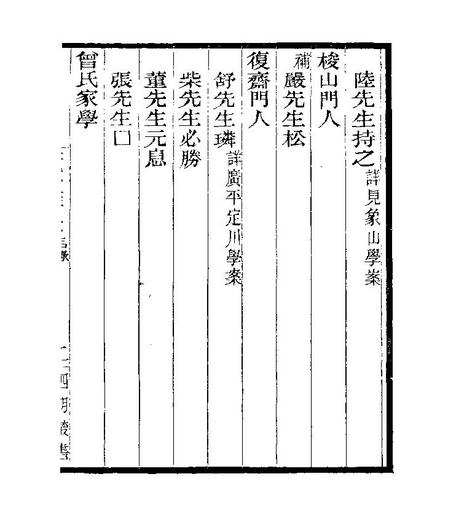 陸先生持之詳見象山學案
梭山門人
補嚴先生松
復齋門人
舒先生璘詳廣平定川學案
柴先生必勝
董先生元息
張先生口
曾氏家學
四明叢書